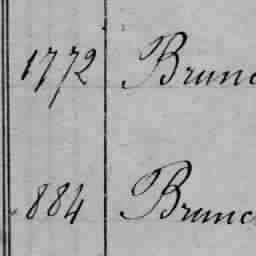 1772 Brunc
884 Brunc